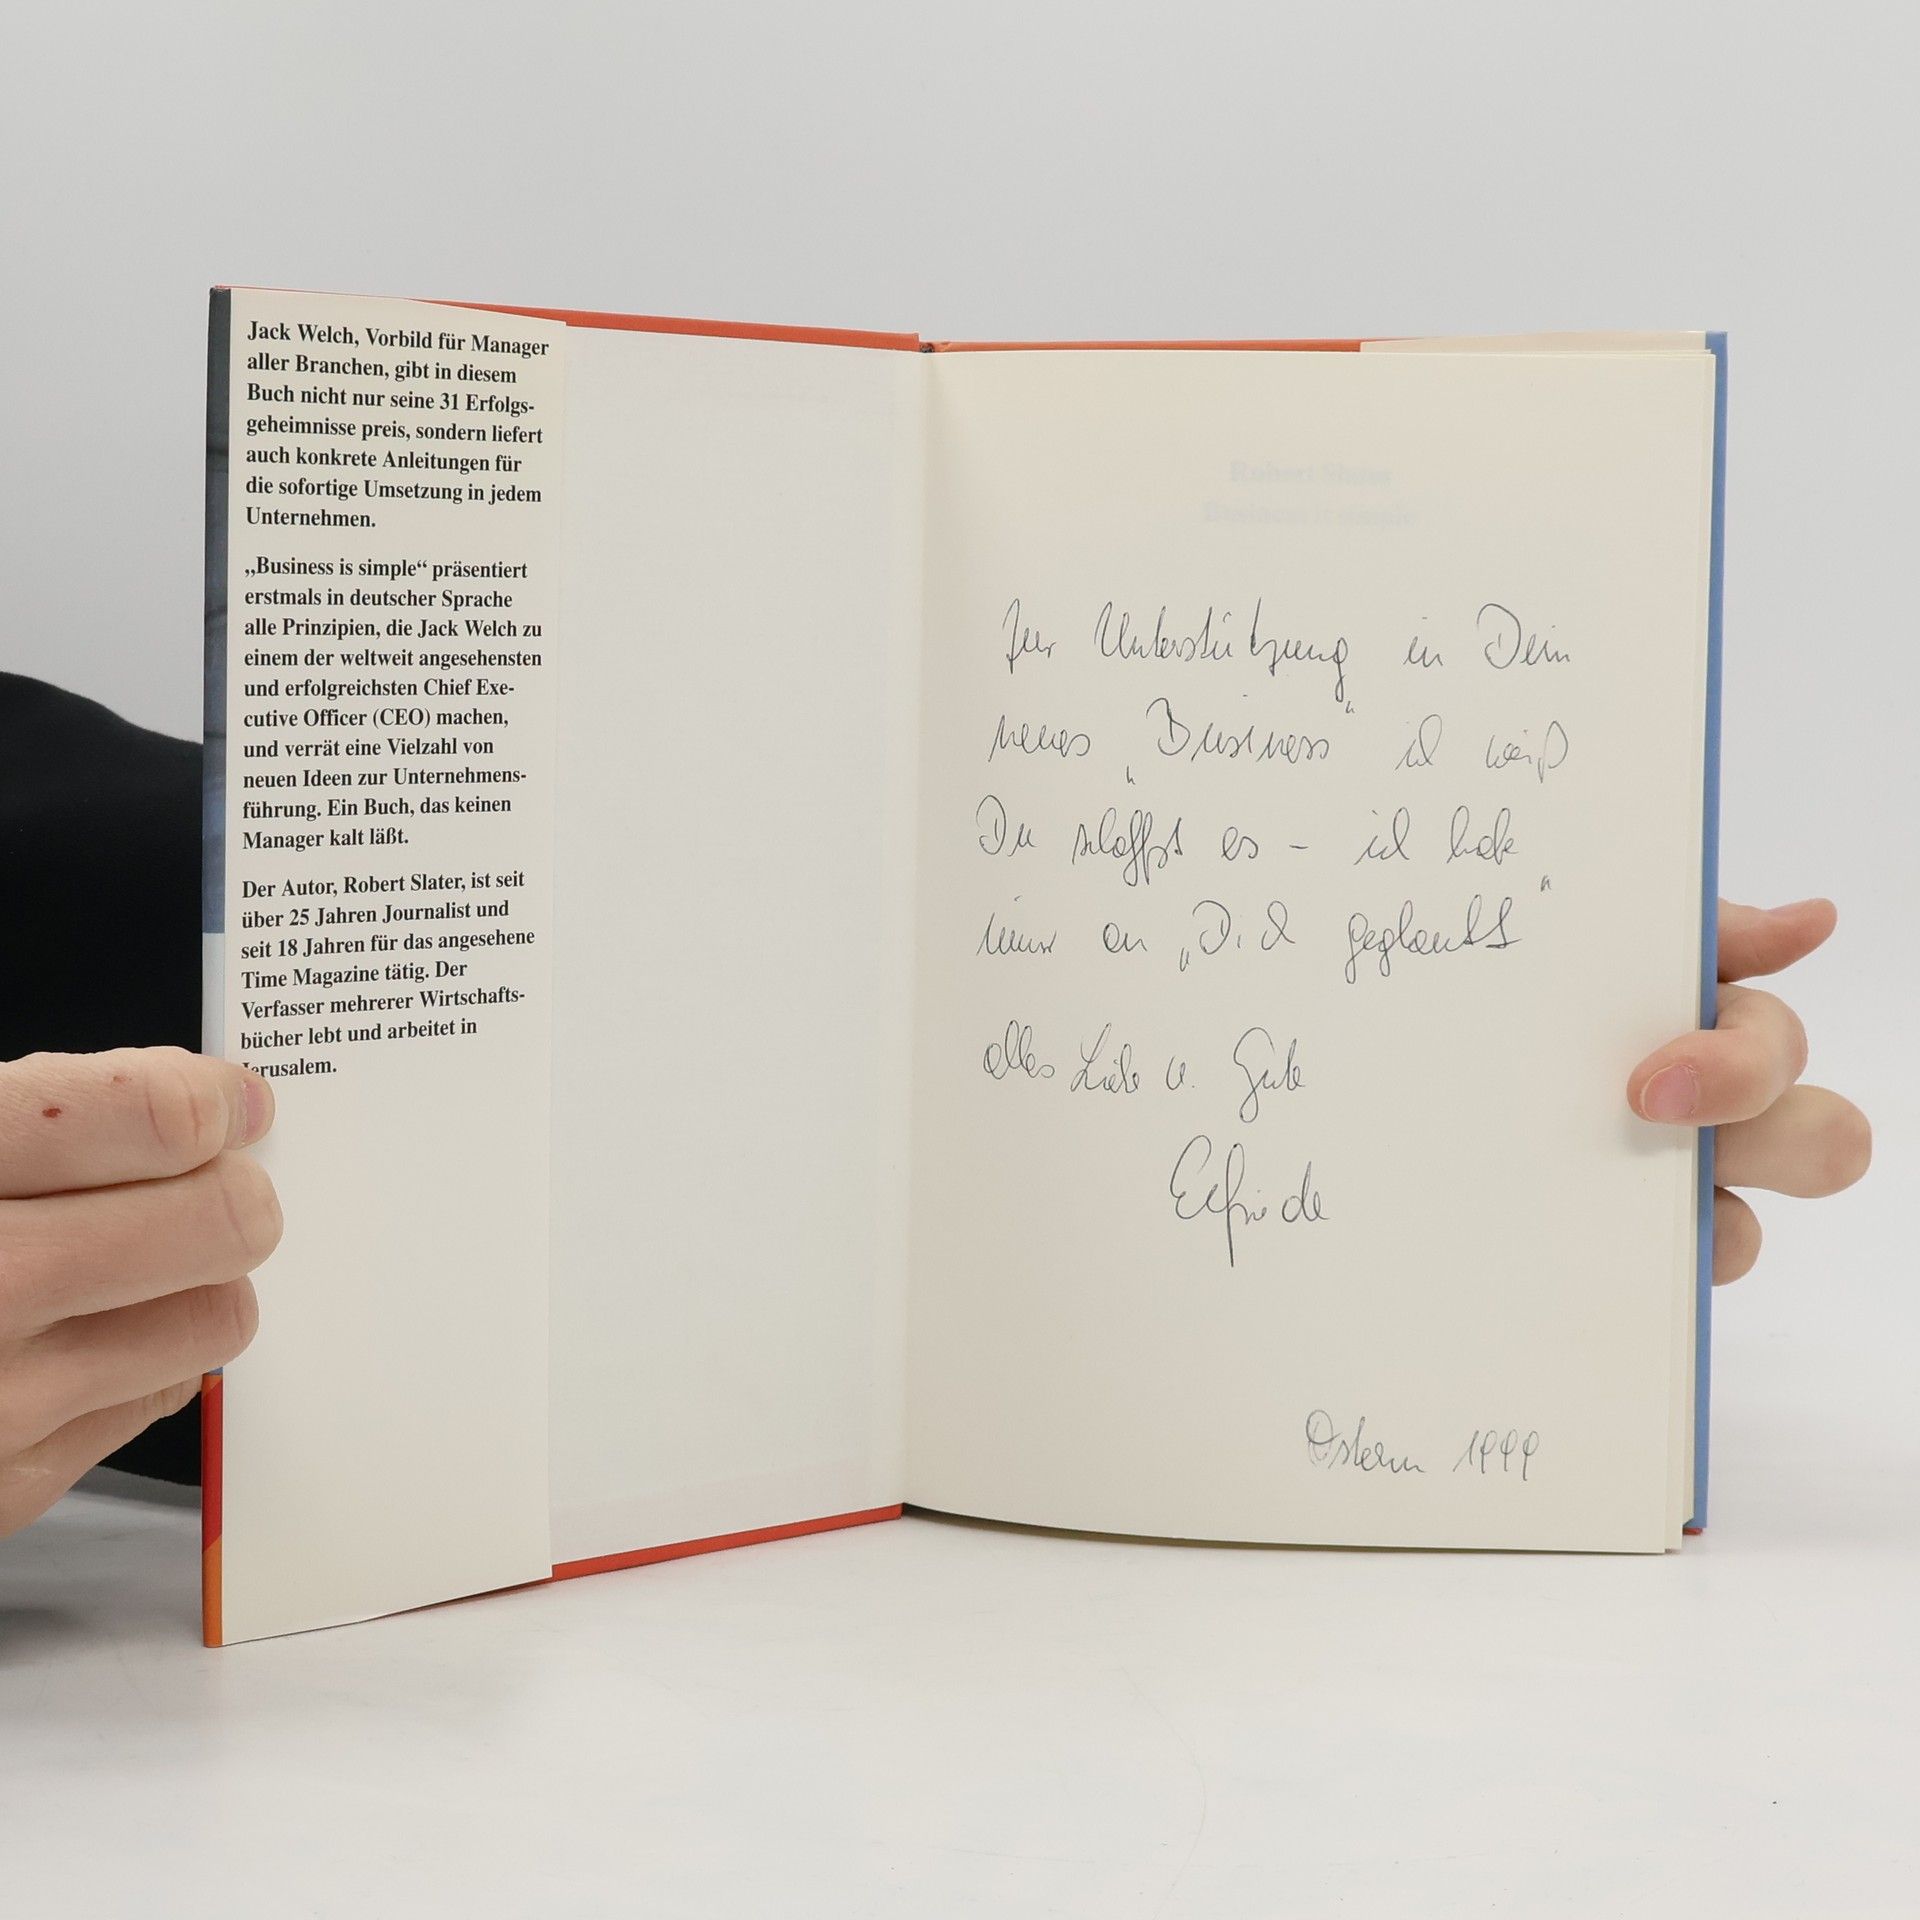 Jack Welch, Vorbild für Manager
aller Branchen, gibt in diesem
Buch nicht nur seine 31 Erfolgs-
geheimnisse preis, sondern liefert
auch konkrete Anleitungen für
die sofortige Umsetzung in jedem
Unternehmen.
„Business is simple“ präsentiert
erstmals in deutscher Sprache
alle Prinzipien, die Jack Welch zu
einem der weltweit angesehensten
und erfolgreichsten Chief Exe-
cutive Officer (CEO) machen,
und verrät eine Vielzahl von
neuen Ideen zur Unternehmens-
führung. Ein Buch, das keinen
Manager kalt läßt.
Der Autor, Robert Slater, ist seit
über 25 Jahren Journalist und
seit 18 Jahren für das angesehene
Time Magazine tätig. Der
Verfasser mehrerer Wirtschafts-
bücher lebt und arbeitet in
Jerusalem.
Robert Slater
Business is simple
Zur Unterstützung in Dein
neues „Business“ ich weiß
Du schaffst es – ich habe
immer an „Dich geglaubt“
alles Liebe u. Gute
Elfriede
Ostern 1999